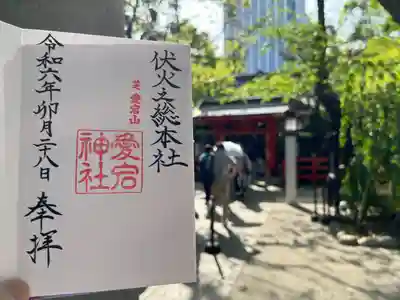 伏火之総本社
芝 愛宕山
愛宕
神社
令和六年卯月二十八日
奉拝